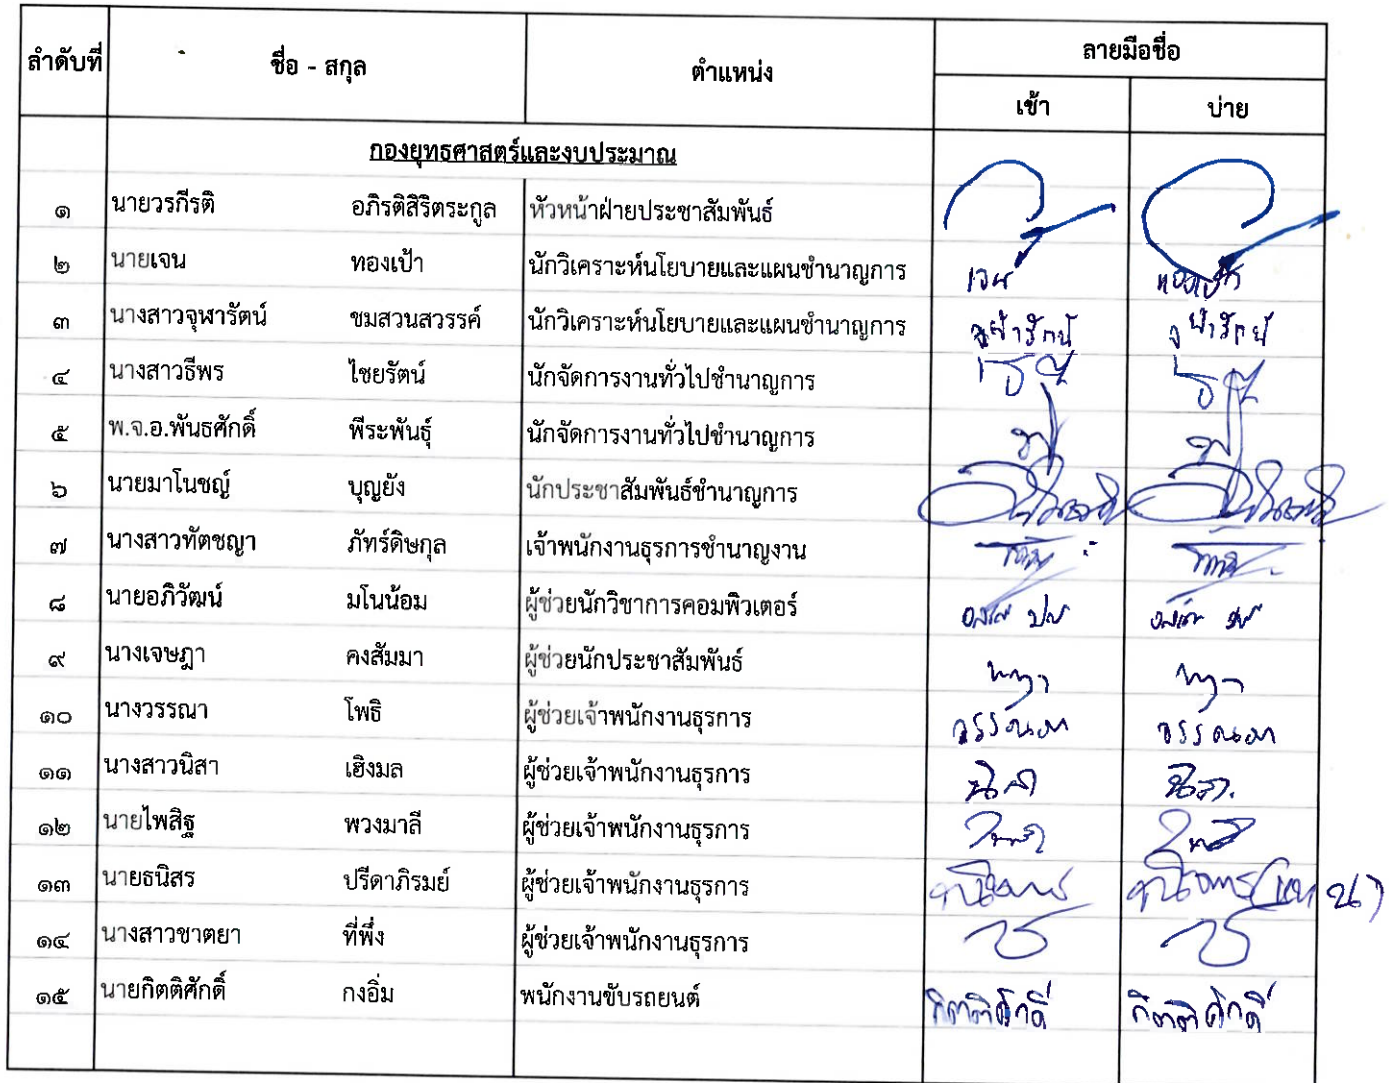 ลำดับที่ ชื่อ - สกุล ตำแหน่ง ลายมือชื่อ
เช้า บ่าย
กองยุทธศาสตร์และงบประมาณ
๑ นายวรกีรติ อภิรติสิริตระกูล หัวหน้าฝ่ายประชาสัมพันธ์
๒ นายเจน ทองเป้า นักวิเคราะห์นโยบายและแผนชำนาญการ เจน ทองเป้า
๓ นางสาวจุฬารัตน์ ชมสวนสวรรค์ นักวิเคราะห์นโยบายและแผนชำนาญการ จุฬารัตน์ จุฬารัตน์
๔ นางสาวธีพร ไชยรัตน์ นักจัดการงานทั่วไปชำนาญการ
๕ พ.จ.อ.พันธศักดิ์ พีระพันธุ์ นักจัดการงานทั่วไปชำนาญการ
๖ นายมาโนชญ์ บุญยัง นักประชาสัมพันธ์ชำนาญการ
๗ นางสาวทัตชญา ภัทร์ดิษกุล เจ้าพนักงานธุรการชำนาญงาน
๘ นายอภิวัฒน์ มโนน้อม ผู้ช่วยนักวิชาการคอมพิวเตอร์
๙ นางเจษฎา คงสัมมา ผู้ช่วยนักประชาสัมพันธ์
๑๐ นางวรรณา โพธิ ผู้ช่วยเจ้าพนักงานธุรการ
๑๑ นางสาวนิสา เฮิงมล ผู้ช่วยเจ้าพนักงานธุรการ นิสา นิสา
๑๒ นายไพสิฐ พวงมาลี ผู้ช่วยเจ้าพนักงานธุรการ
๑๓ นายธนิสร ปรีดาภิรมย์ ผู้ช่วยเจ้าพนักงานธุรการ
๑๔ นางสาวชาตยา ที่พึ่ง ผู้ช่วยเจ้าพนักงานธุรการ
๑๕ นายกิตติศักดิ์ กงอิ่ม พนักงานขับรถยนต์ กิตติศักดิ์ กิตติศักดิ์